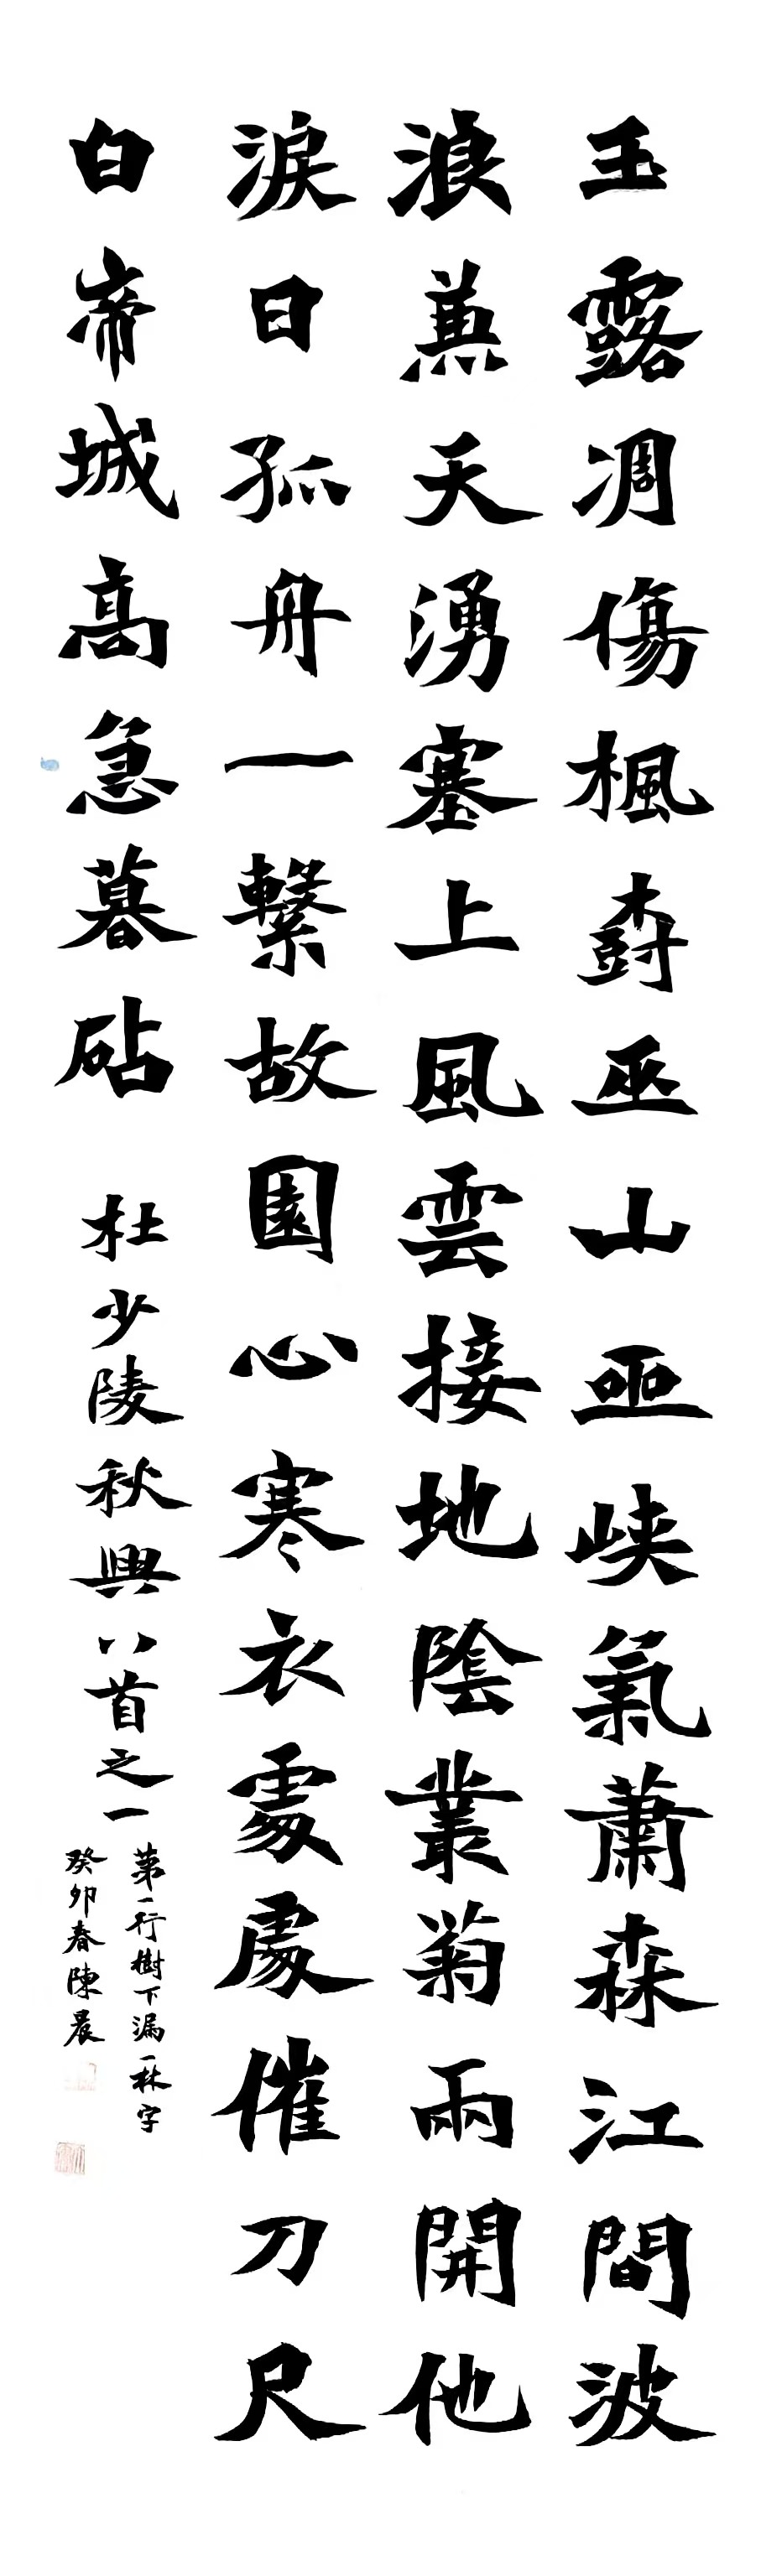 玉露凋傷楓尌巫山巫峽氣蕭森江間波
浪兼天湧塞上風雲接地陰叢菊兩開他
淚日孤舟一繫故園心寒衣處處催刀尺
白帝城高急暮砧
杜少陵秋興八首之一
第一行樹下漏一林字
癸卯春陳晨